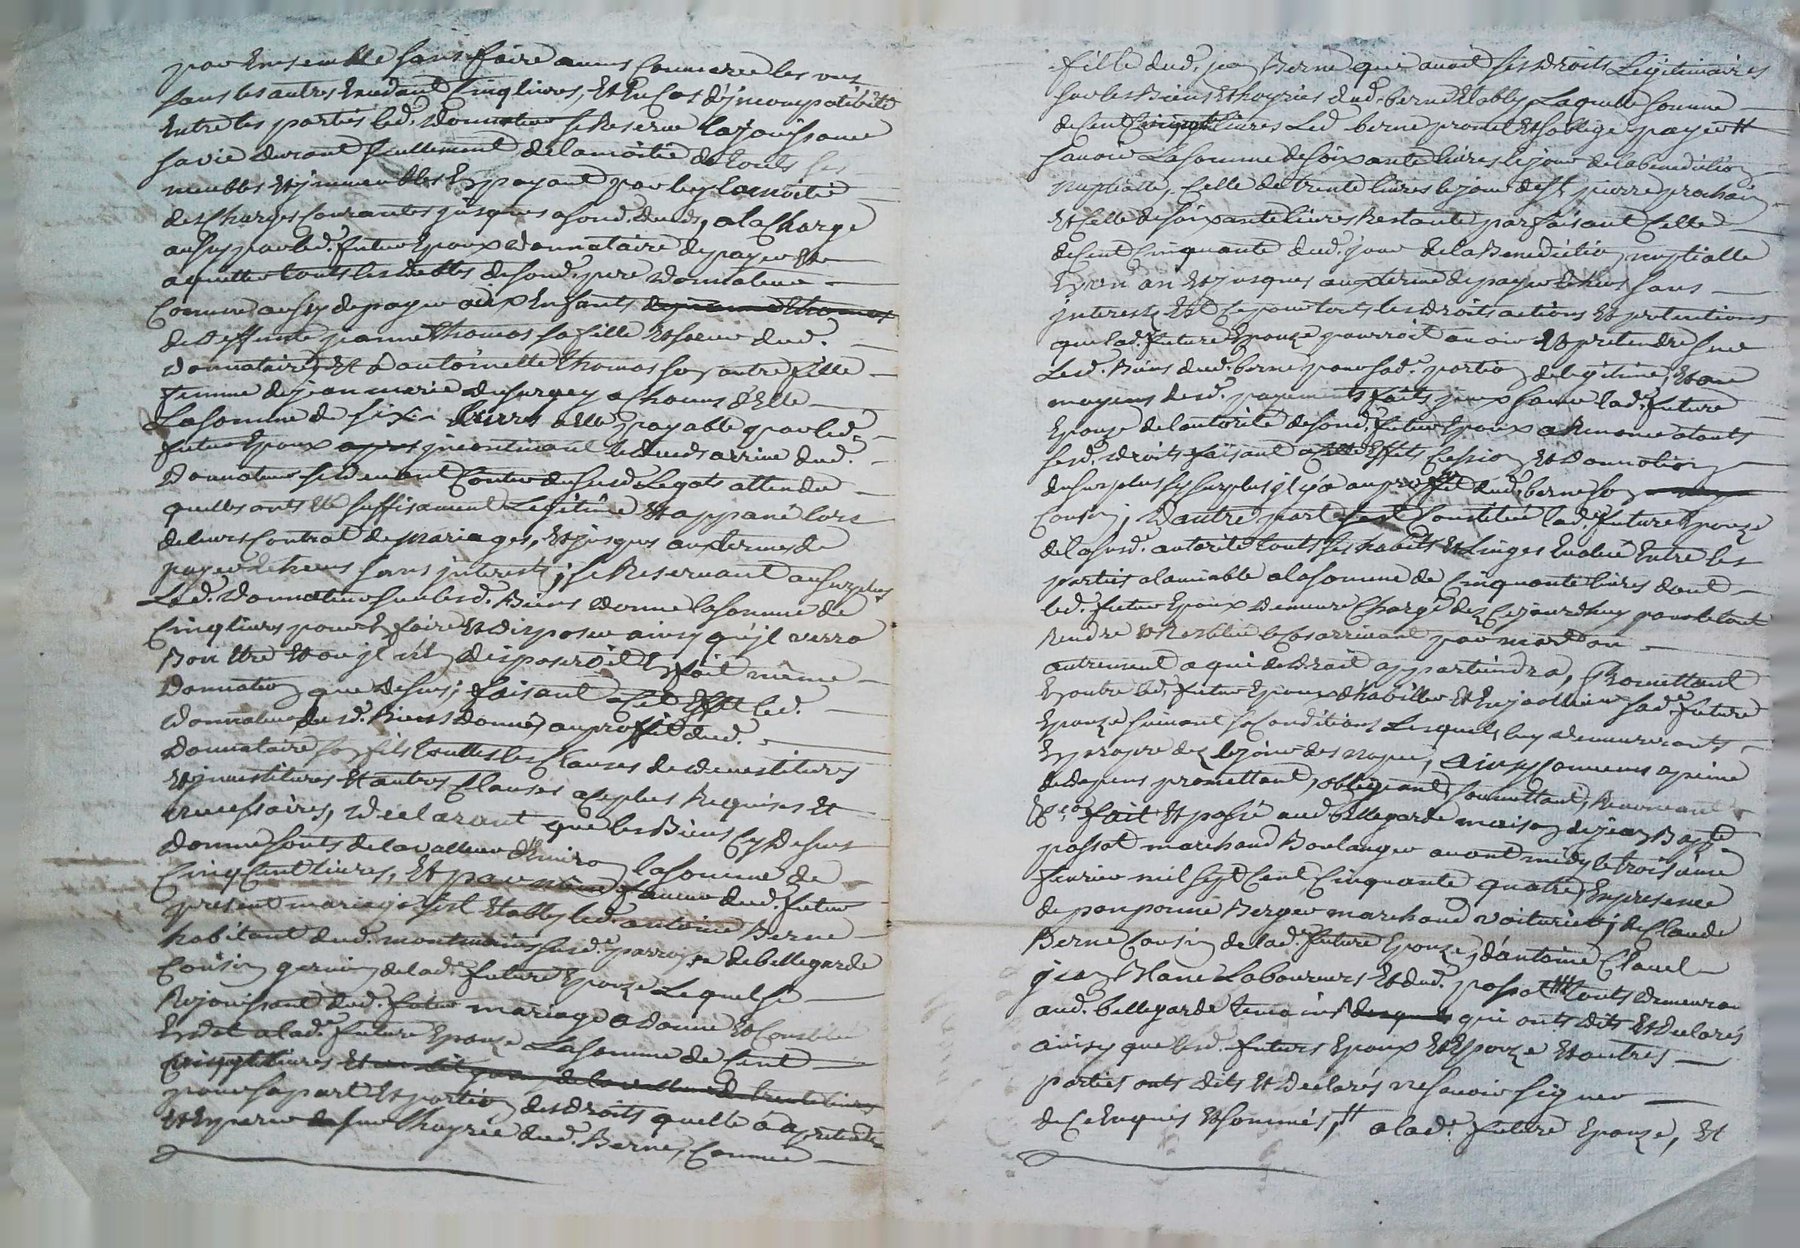 par Ensemble sans faire aucun Commerce les uns
sans les autres Excedant Cinq livres, Et En Cas d'jncompatibité
Entre les parties led. donnateur se Reserve la jouissance
sa vie durant seullement de la moitié de touts ses
meubles et jmmeubles En payant par luy la moitié
des Charges Courantes jusques a son d. deceds, a la Charge
aussy par led. futur Epoux donnataire de payer et
aquitter touts les debtes de son d. pere donnateur
Comme aussy de payer aux Enfants
de deffunte jeanne thomas sa fille Et soeur dud.
donnataire, Et d'antoinette thomas son autre fille
femme de jean marie dusurgey a chacune d'Elle
La somme de six livres payable par led.
futur Epoux jncontinant le deceds arrivé dud.
donnateur se Contenter du susd. Legats attendu
quelles onts été suffisament Legitimé Et appané lors
de leurs Contrat de mariages, Et jusques aux termes de
payer de hens sans jnterests; se Reservant au surplus
Led. donnateur sur lesd. Biens donné la somme de
Cinq livres pour En faire Et disposer ainsy qu'jl verra
Bon Etre Et ou jl n'En disposeroit En fait même
donnation que dessus; faisant a cet Effet led.
donnateur desd. Biens donnés au proffit dud.
donnataire son fils touttes les Clauses de devestitures
Et jnvestitures Et autres Clauses a ce plus Requises Et
necessaires, declarant que les Biens Cy dessus
donné sonts de la valleur d'Environ la somme de
Cinq Cent livres, Et par même faveur dud. futur
present mariage s'est Etably led. antoine Berne
habitant dud. montmain susd. parroisse de bellegarde
Cousin germain de lad. future Epouze Lequel se
Rejouissant dud. futur mariage a donné Et Constitué
En dot a lad. future Epouze La somme de Cent
Cinq livres
pour sa part Et portion des droits quelle a a pretendre
Et Esperer sur l'hoyrie dud. Berne, Comme
fille dud. jean Berne qui avoit ses droits Legitimaires
sur les Biens Et hoyries dud. berne Etably Laquelle somme
de Cent livres Led. berne promet Et s'oblige payer
savoir La somme de soixante livres le jour de la benediction
nuptialle, Celle de trente livres le jour de st. pierre prochain
Et Celle de soixante livres Restante parfaisant Celle
de Cent Cinquante dud. jour de la Benediction nuptialle
En un an Et jusques aux termes de payer de hens sans
jnterests Et Ce pour touts les droits actions Et pretentions
que lad. future Epouze pourroit avoir Et pretendre sur
Lesd. Biens dud. berne pour sad. portion de legitime, Et au
moyens desd. payements faits jceux faire lad. future
Epouze de l'autorité de son d. futur Epoux a Renoncé a touts
sesd. droits faisant a cette Effets Cession Et donnation
du surplus sy surplus jl y a au proffit dud. berne son
Cousin; D'autre part s'est Constitué lad. future Epouze
de la susd. autorité touts ses habits Et Linges Evalué Entre les
parties a l'amiable a la somme de Cinquante livres dont
led. futur Epoux demeure Chargé dez Cejourdhuy pour le tout
Rendre Et Restituer le Cas arrivant par mort ou
autrement a qui de droit appartiendra, Promettant
En outre led. futur Epoux d'habiller Et Enjoailler sad. future
Epouze suivant sa Condition; Lesquels luy demeureronts
En propre dez le jour des noces, Ainsy Convenu a peine
de depens promettant, obligeant, soumettant, Renonceant
&ca. fait Et passé aud. bellegarde maison de jean Bapte.
passot marchand Boulanger avant midy le troisieme
fevrier mil sept Cent Cinquante quatre, En presence
de ponponne Berger marchand voiturier; de Claude
Berne Cousin de lad. future Epouze, d'antoine Clavel
jean Blanc Laboureurs Et dud. passot touts demeurants
aud. bellegarde temoins qui onts dits Et declarés
ainsy que lesd. futurs Epoux Et Epouze Et autres
parties onts dits Et declarés ne savoir signer
de Ce Enquis Et sommés, a lad. future Epouze, Et